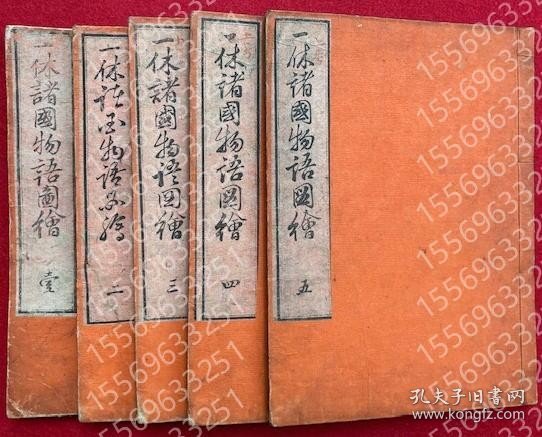 一休諸國物語圖繪 壹
一休諸国物語圖繪 二
一休諸國物語図繪 三
一休諸國物語圖繪 四
一休諸國物語圖繪 五
15569633251
孔夫子旧书网
www.kongfz.com